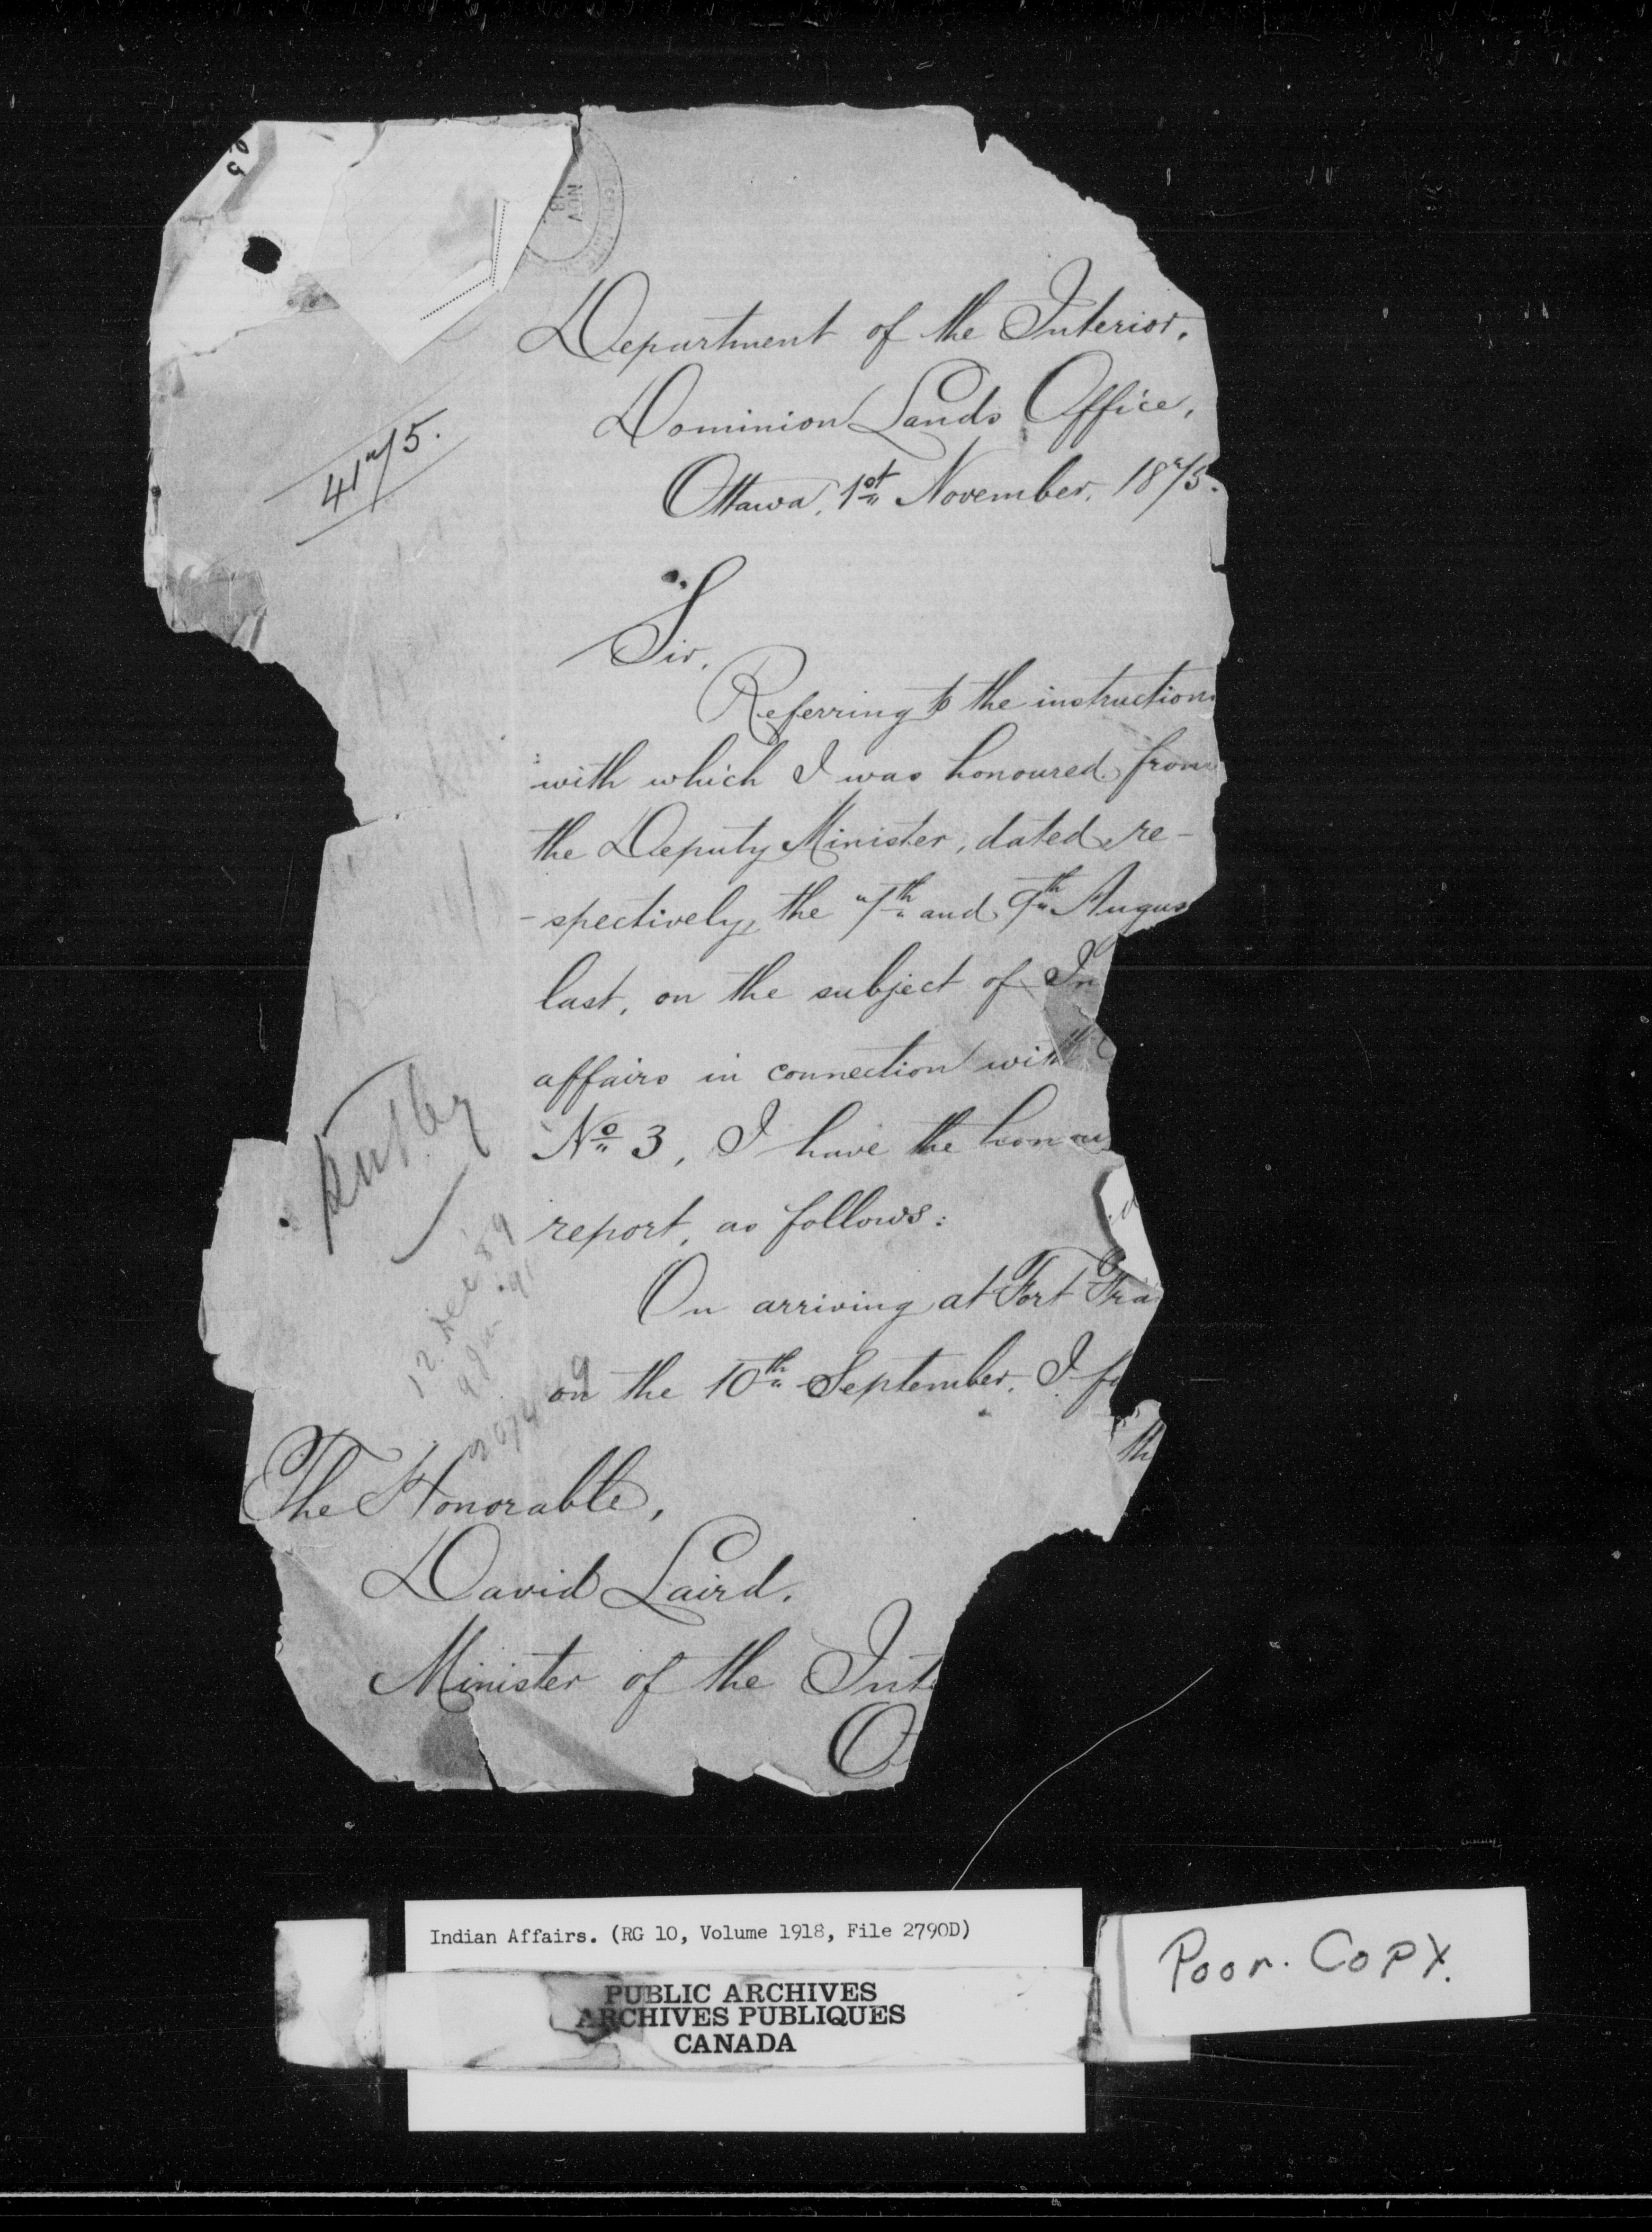 NOV
Department of the Interior.
Dominion Lands Office,
41 75.
Ottawa, 1st November, 1875.
Sir,
Referring to the instructions
with which I was honoured from
the Deputy Minister, dated re-
-spectively, the 7th and 9th Augus
last, on the subject of In
affairs in connection with
No 3, I have the honou
report, as follows:
On arriving at Fort Fra
on the 10th September, I fo
th
12 Dec 89
The Honorable,
David Laird.
Minister of the Inte
O
Indian Affairs. (RG 10, Volume 1918, File 2790D)
PUBLIC ARCHIVES
ARCHIVES PUBLIQUES
CANADA
Poor. Copy.